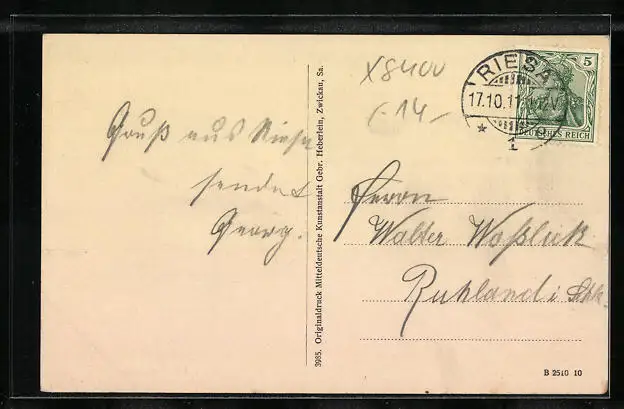 Gruß aus Riesa
sendet
Georg.
3985. Originaldruck Mitteldeutsche Kunstanstalt Gebr. Heberlein, Zwickau, Sa.
X8400
14,-
RIESA
17.10.11
* 1
5
DEUTSCHES REICH
Herrn
Walter
Ruhland i. Schl.
B 2510 10